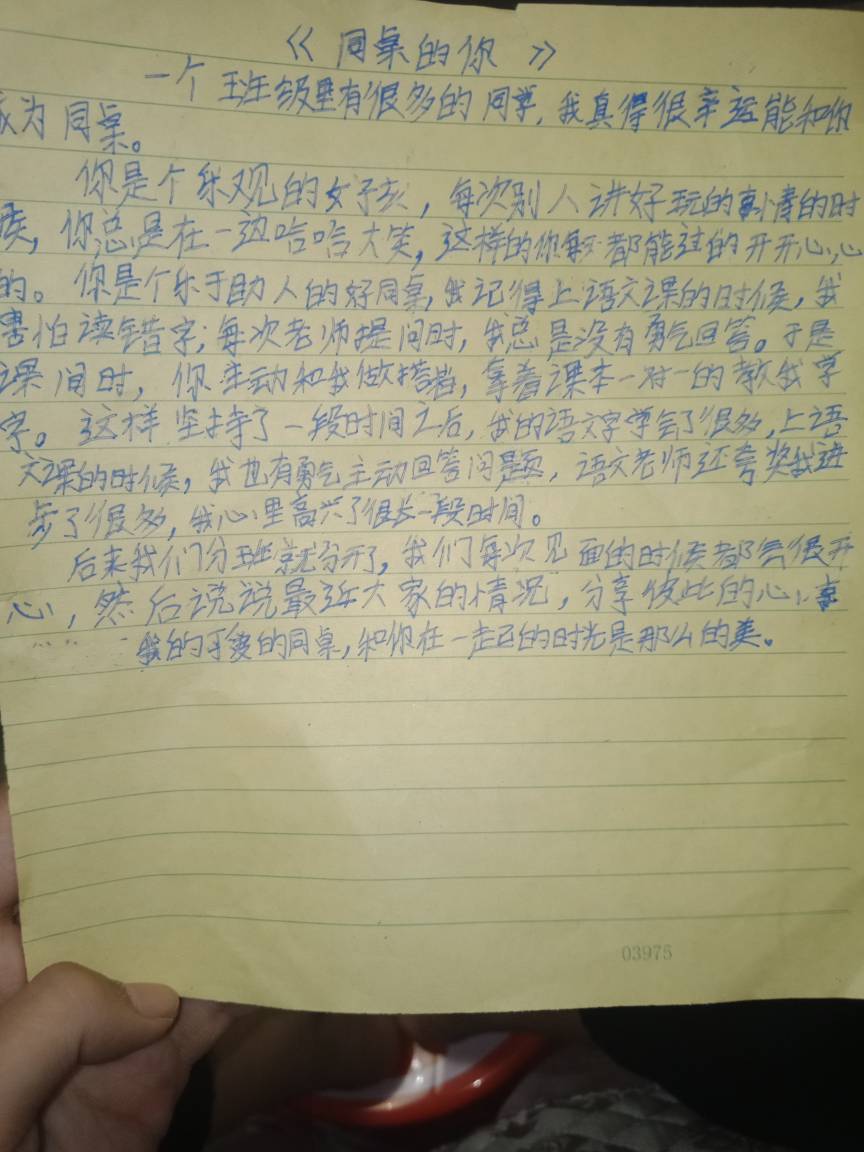 《同桌的你》
一个班级里有很多的同学，我真得很幸运能和你
成为同桌。
你是个乐观的女孩，每次别人讲好玩的事情的时
候，你总是在一边哈哈大笑，这样的你每天都能过的开开心心
的。你是个乐于助人的好同桌，我记得上语文课的时候，我
害怕读错字；每次老师提问时，我总是没有勇气回答。于是
课间时，你主动和我做搭档，拿着课本一对一的教我学
字。这样坚持了一段时间之后，我的语文字学会了很多，上语
文课的时候，我也有勇气主动回答问题，语文老师还夸奖我进
步了很多，我心里高兴了很长一段时间。
后来我们分班就分开了，我们每次见面的时候都会很开
心，然后说说最近大家的情况，分享彼此的心事
……
我的可爱的同桌，和你在一起的时光是那么的美。
03975